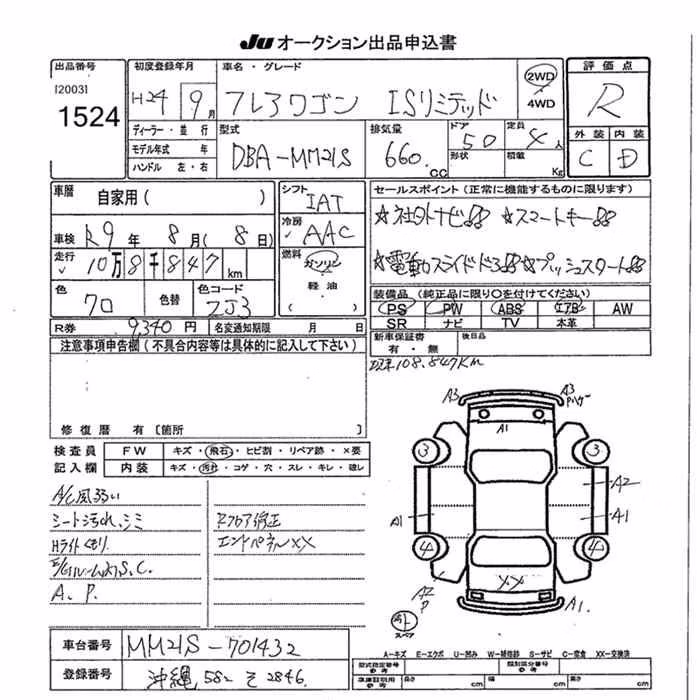 JU オークション出品申込書
出品番号 初度登録年月 車名・グレード 評価点
[2003] H24 9月 フレアワゴン ISリミテッド 2WD R
1524 4WD
ディーラー・並行 型式 排気量 ドア 5D 定員 4人 外装 内装
モデル年式 年 DBA-MM21S 660.cc 形状 積載 Kg C D
ハンドル 左・右
車歴 自家用( ) シフト IAT セールスポイント(正常に機能するものに限ります)
車検 R9年 8月(8日) 冷房 AAC ☆社外ナビ!! ☆スマートキー!!
走行 10万8千847km 燃料 ガソリン ☆電動スライドドア!! ☆プッシュスタート!!
軽油
色 色替 色コード ( ) 装備品(純正品に限り○を付けてください)
ZJ3 PS PW ABS エアB AW
R券 9340円 名変通知期限 月 日 SR ナビ TV 本革
注意事項申告欄(不具合内容等は具体的に記入して下さい) 新車保証書 後日品
有・無
現車108.847Km
修復歴 有[箇所 ]
検査員 FW キズ・飛石・ヒビ割・リペア跡・×要
記入欄 内装 キズ・汚れ・コゲ・穴・スレ・キレ・破レ
A/C風弱い
シート汚れ、シミ Rフロア修正
Hライトくもり エンドパネルXX
E/Gルーム内S.C.
A.P.
A3 A3
A1
3 3
A2
A1 A1
4 4
A2 XX
P A1
スペア
車台番号 MM21S-701432
登録番号 沖縄 582 そ 2846
A-キズ E-エクボ U-凹み W-補修跡 S-サビ C-腐食 XX-交換済
型式指定番号 参考 類別区分番号 参考
車庫証明用 参考 長さ cm 幅 cm 高さ cm